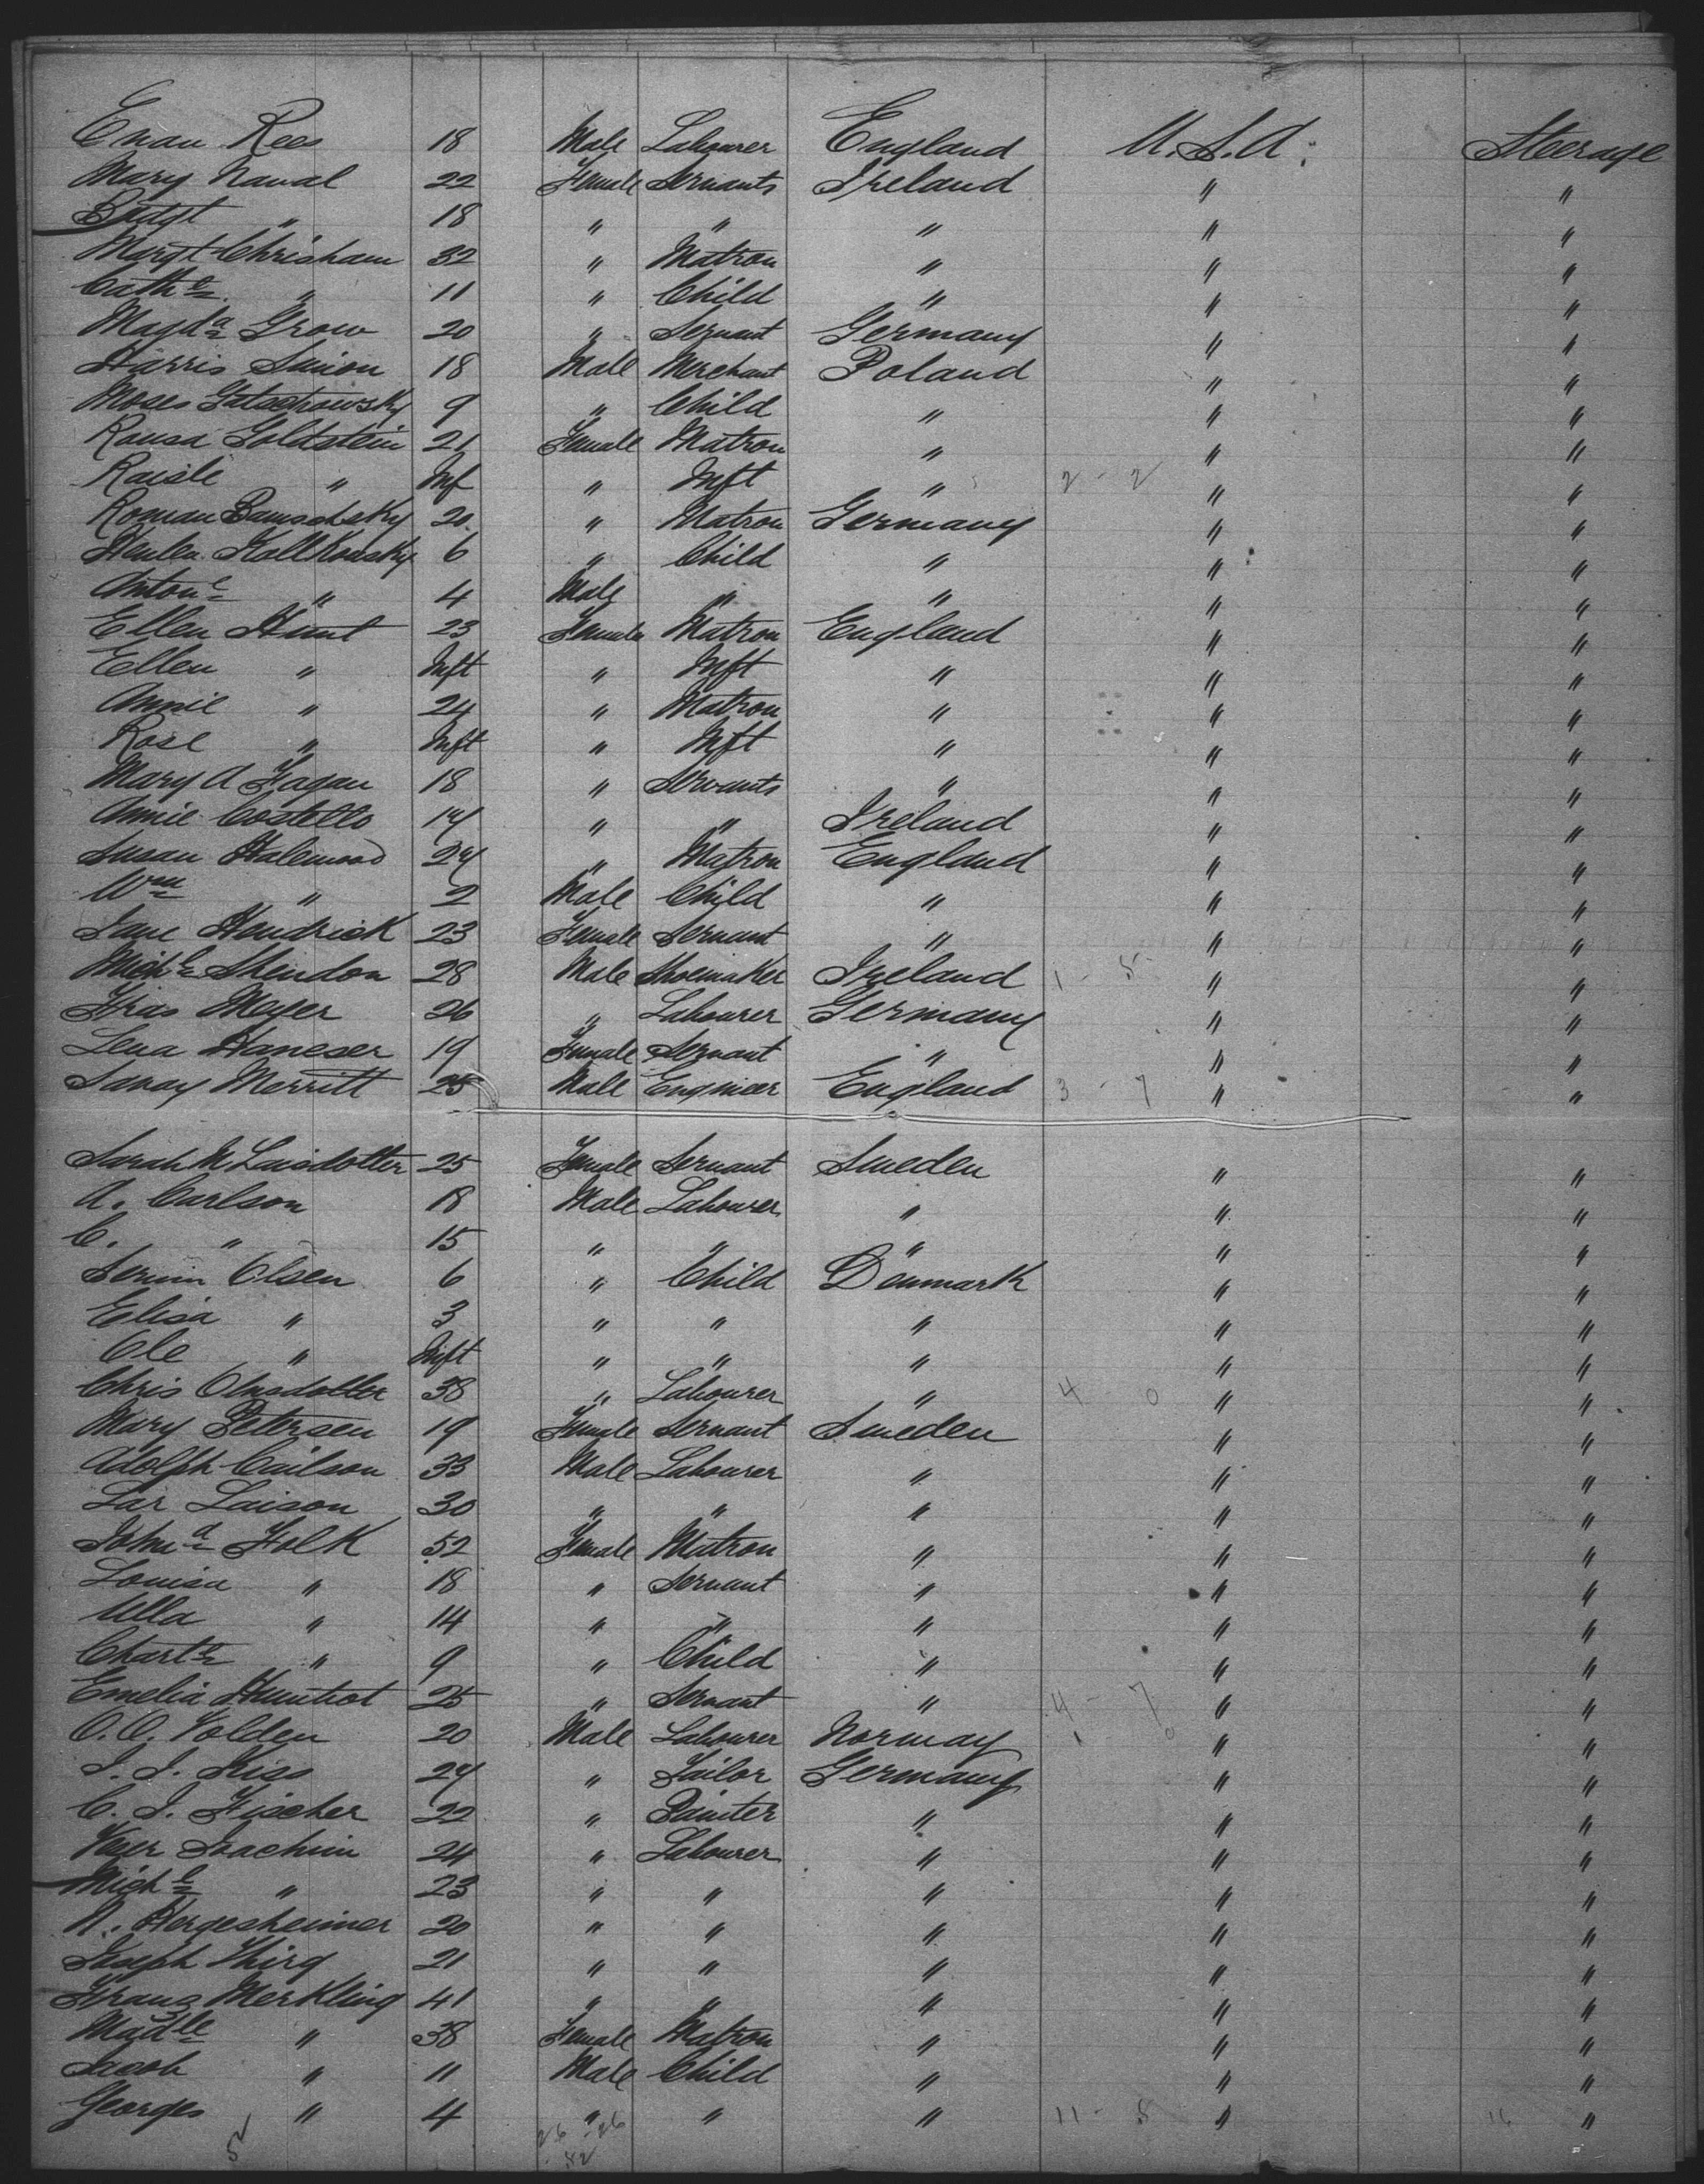 Evan Rees 18 Male Labourer England U.S.A. Steerage
Mary Naval 22 Female Servants Ireland " "
Bridgt " 18 " " " " "
Margt Chrisham 32 " Matron " " "
Cathe " 11 " Child " " "
Magda Grow 20 " Servant Germany " "
Harris Simon 18 Male Merchant Poland " "
Moses Gatschowsky 9 " Child " " "
Rousa Goldstein 21 Female Matron " " "
Raisle " Inf " Inft " 2 - 2 " "
Roman 20 " Matron Germany " "
Kollkowsky 6 " Child " " "
Antone " 4 Male " " " "
Ellen Hunt 23 Female Matron England " "
Ellen " Inft " Inft " " "
Annie " 24 " Matron " " "
Rose " Inft " Inft " " "
Mary A Fagan 18 " Servants " " "
Annie Costello 17 " " Ireland " "
Susan Halewood 27 " Matron England " "
Wm " 2 Male Child " " "
Jane Hendrick 23 Female Servant " " "
Michl Shendon 28 Male Shoemaker Ireland 1 - 5 " "
Meyer 26 " Labourer Germany " "
Lena Haneser 19 Female Servant " " "
Merritt 25 Male Engineer England 3 - 7 " "
Sarah M Laisdotter 25 Female Servant Sweden " "
A. Carlson 18 Male Labourer " " "
C. " 15 " " " " "
Olsen 6 " Child Denmark " "
Elisa " 3 " " " " "
Ole " Inft " " " " "
Chris Olnsdotter 38 " Labourer " 4 0 " "
Mary Petersen 19 Female Servant Sweden " "
Adolph Cailson 33 Male Labourer " " "
Lar Laison 30 " " " " "
Johna Folk 52 Female Matron " " "
Louisa " 18 " Servant " " "
Ulla " 14 " " " " "
Charte " 9 " Child " " "
Emelia 25 " Servant " 4 - 7 " "
O. O. Volden 20 Male Labourer Norway " "
J. J. Kiss 27 " Tailor Germany " "
C. J. Fischer 22 " Painter " " "
Joachim 24 " Labourer " " "
Michl " 23 " " " " "
N. Hergesheimer 20 " " " " "
Joseph Thirg 21 " " " " "
Franz Merkling 41 " " " " "
Madle " 38 Female Matron " " "
Jacob " 11 Male Child " " "
Georges " 4 " " " 11 - 8 " 16 "
26 - 26
52